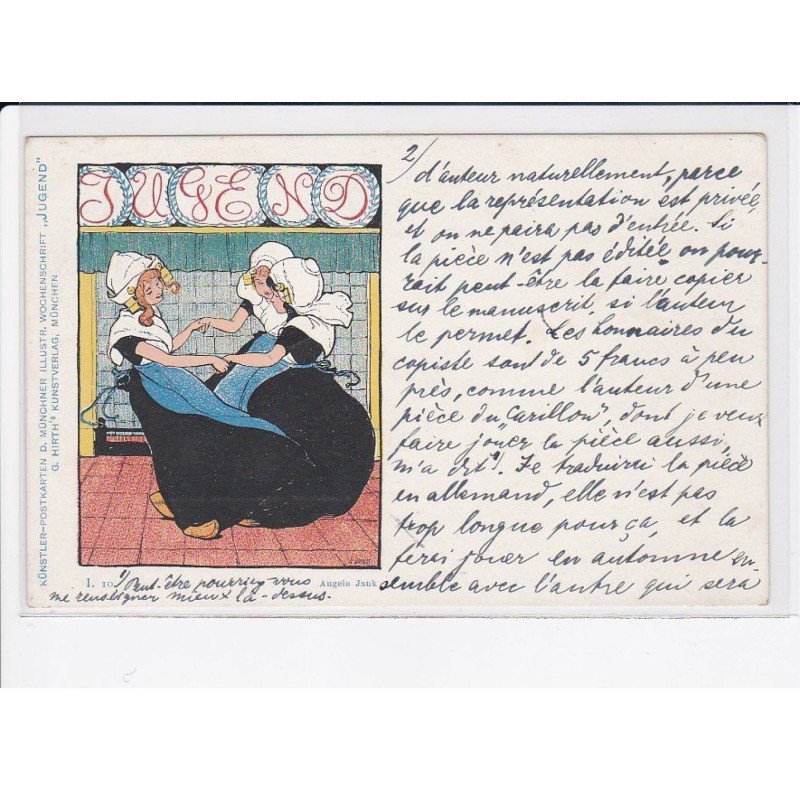 KÜNSTLER-POSTKARTEN D. MÜNCHNER ILLUSTR. WOCHENSCHRIFT „JUGEND“
G. HIRTH'S KUNSTVERLAG, MÜNCHEN
JUGEND
I. 10
Angelo Jank
1) Peut-être pourriez vous
me renseigner mieux là-dessus.
2/
d'auteur naturellement, parce
que la représentation est privée,
et on ne paira pas d'entrée. Si
la pièce n'est pas éditée on pour-
rait peut-être la faire copier
sur le manuscrit, si l'auteur
le permet. Les honnaires du
copiste sont de 5 francs à peu
près, comme l'auteur d'une
pièce du Carillon", dont je veux
faire jouer la pièce aussi,
m'a dit. Je traduirai la pièce
en allemand, elle n'est pas
trop longue pour ça, et la
ferai jouer en automne en-
semble avec l'autre qui sera